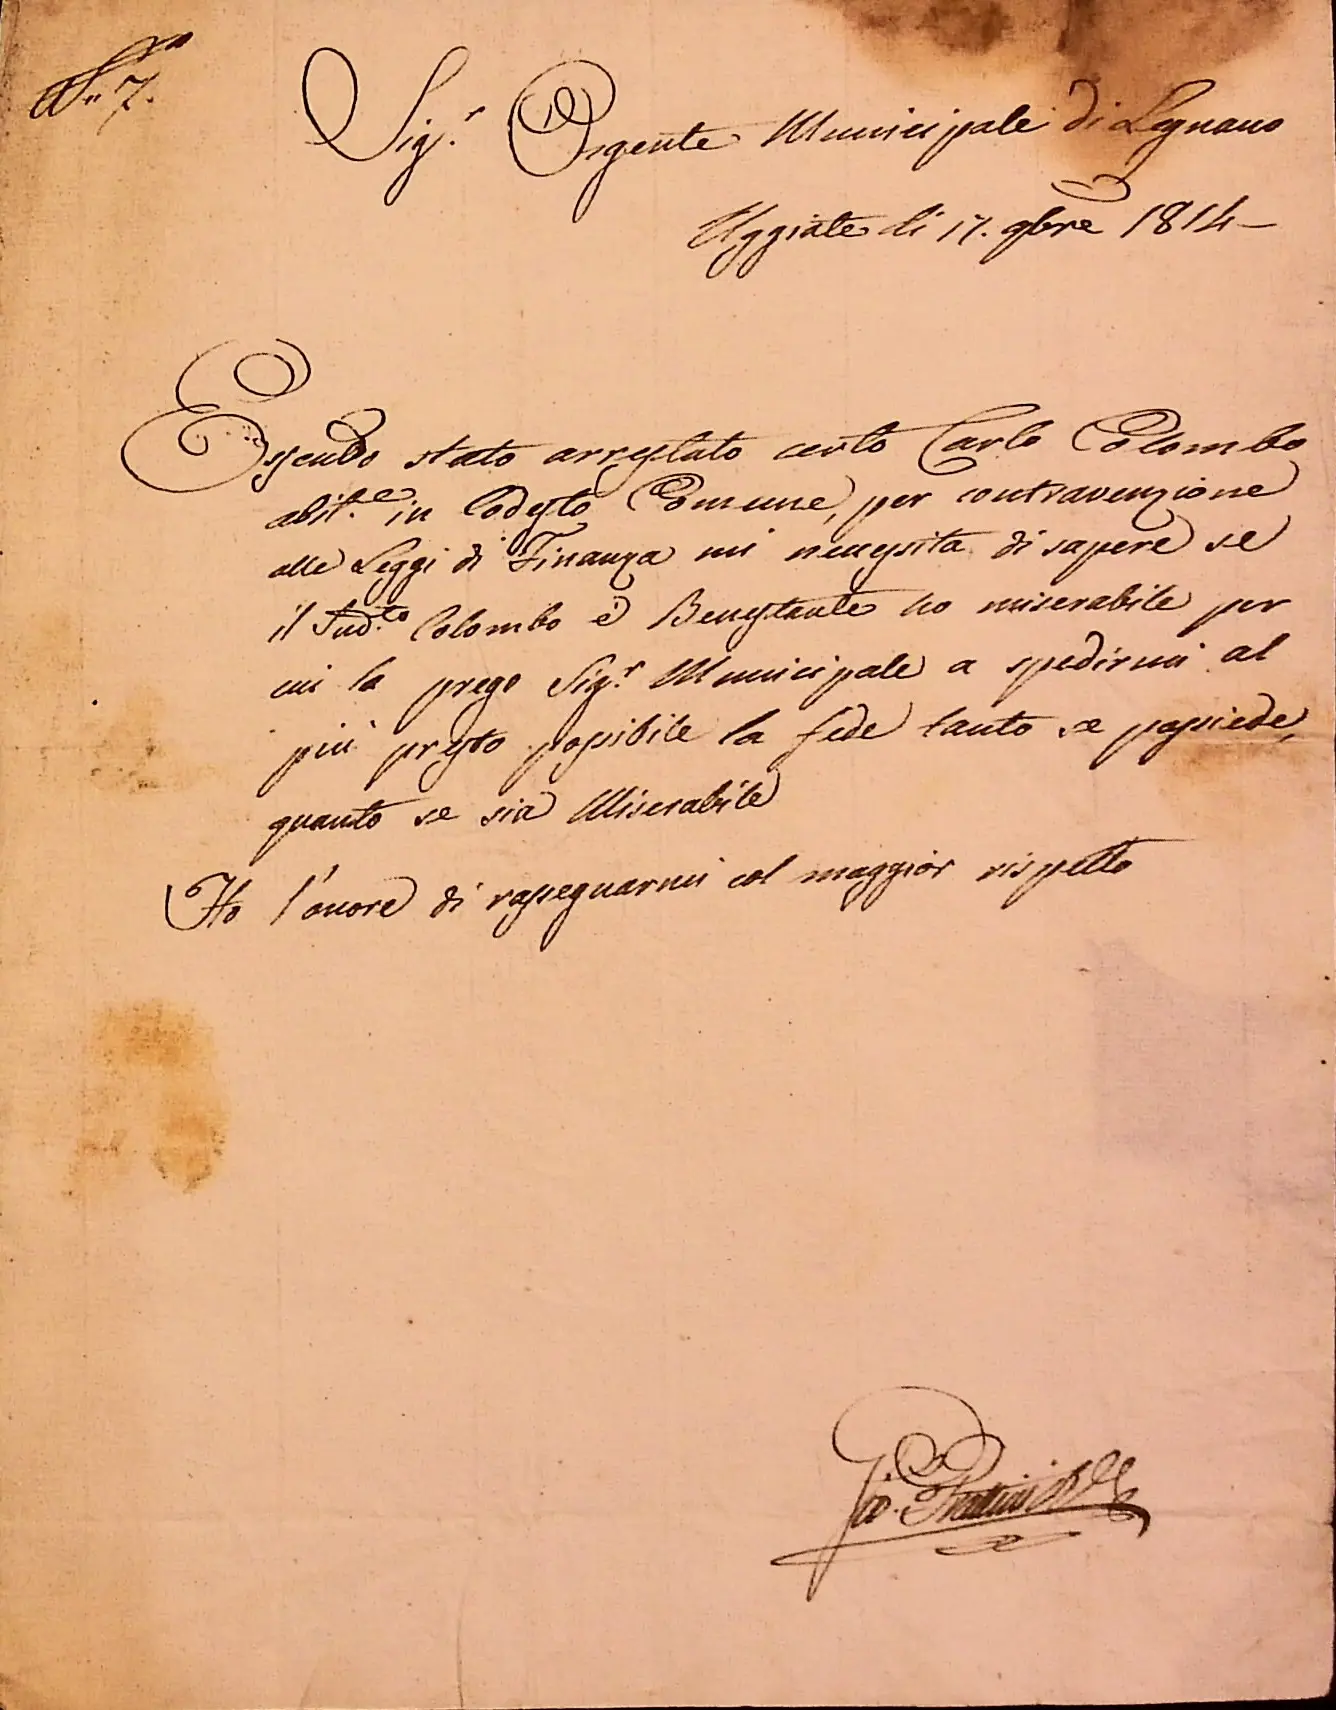 N.° 7.
Sig.r Agente Municipale di Legnano
Uggiate li 17. 9bre 1814 –
Essendo stato arrestato certo Carlo Colombo
abit.e in Codesto Comune, per contravenzione
alle Leggi di Finanza mi necessita di sapere se
il Sud.to Colombo è Benestante ho miserabile per
cui la prego Sig.r Municipale a spedirmi al
più presto possibile la fede tanto se possiede,
quanto se sia Miserabile
Ho l'onore di rassegnarmi col maggior rispetto